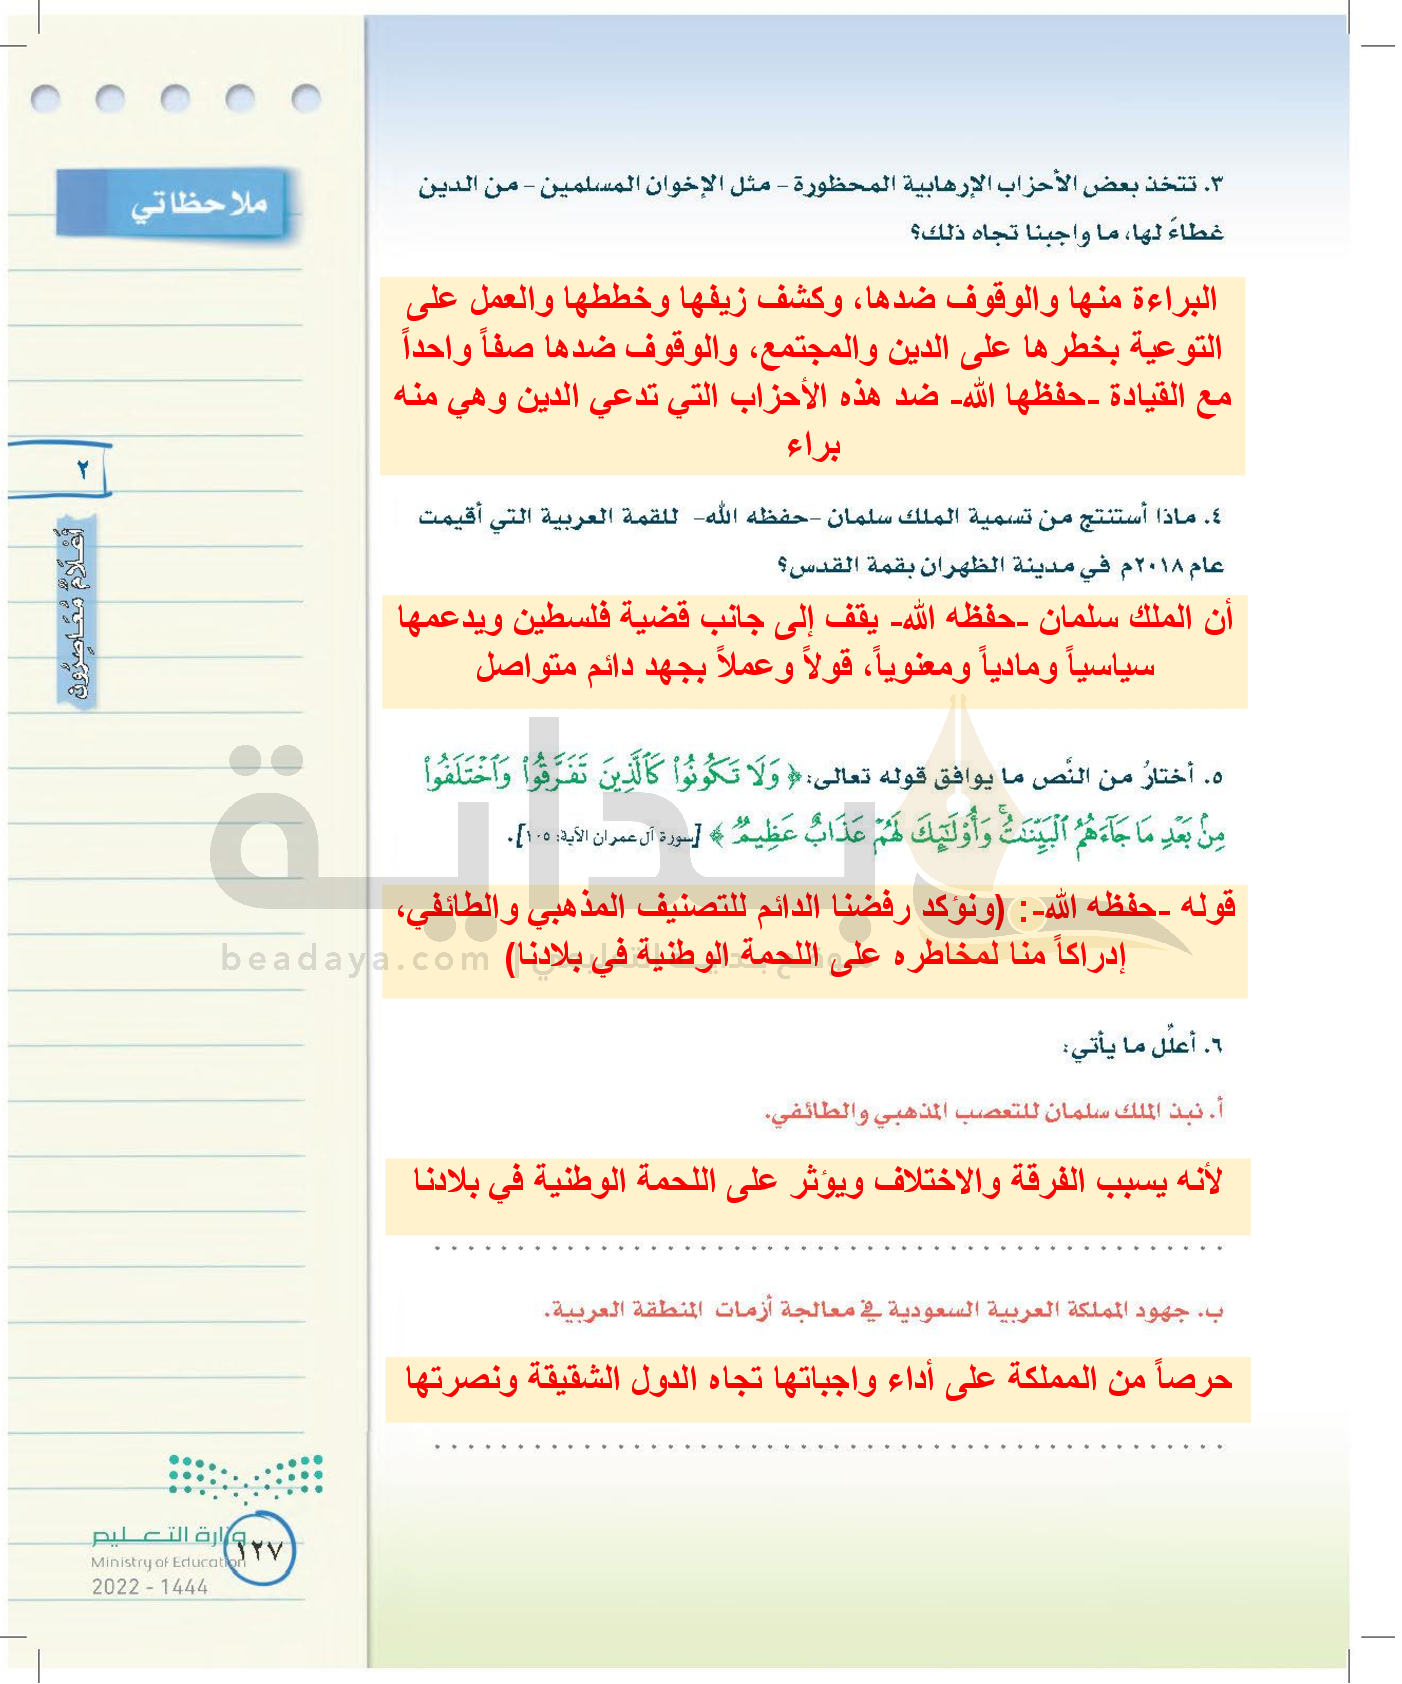 ملاحظاتي
٣. تتخذ بعض الأحزاب الإرهابية المحظورة - مثل الإخوان المسلمين - من الدين
غطاءً لها، ما واجبنا تجاه ذلك؟
البراءة منها والوقوف ضدها، وكشف زيفها وخططها والعمل على
التوعية بخطرها على الدين والمجتمع، والوقوف ضدها صفاً واحداً
مع القيادة -حفظها الله- ضد هذه الأحزاب التي تدعي الدين وهي منه
براء
٢
أعلام معاصرون
٤. ماذا أستنتج من تسمية الملك سلمان -حفظه الله- للقمة العربية التي أقيمت
عام ٢٠١٨م في مدينة الظهران بقمة القدس؟
أن الملك سلمان -حفظه الله- يقف إلى جانب قضية فلسطين ويدعمها
سياسياً ومادياً ومعنوياً، قولاً وعملاً بجهد دائم متواصل
٥. أختارُ من النَّص ما يوافق قوله تعالى: ﴿ وَلَا تَكُونُوا۟ كَٱلَّذِينَ تَفَرَّقُوا۟ وَٱخْتَلَفُوا۟
مِنۢ بَعْدِ مَا جَآءَهُمُ ٱلْبَيِّنَـٰتُ ۚ وَأُو۟لَـٰٓئِكَ لَهُمْ عَذَابٌ عَظِيمٌ ﴾ [سورة آل عمران الآية: ١٠٥].
بداية
beadaya.com | موقع بداية التعليمي
قوله -حفظه الله-: (ونؤكد رفضنا الدائم للتصنيف المذهبي والطائفي،
إدراكاً منا لمخاطره على اللحمة الوطنية في بلادنا)
٦. أعلِّل ما يأتي:
أ. نبذ الملك سلمان للتعصب المذهبي والطائفي.
لأنه يسبب الفرقة والاختلاف ويؤثر على اللحمة الوطنية في بلادنا
ب. جهود المملكة العربية السعودية في معالجة أزمات المنطقة العربية.
حرصاً من المملكة على أداء واجباتها تجاه الدول الشقيقة ونصرتها
وزارة التعليم
Ministry of Education
2022 - 1444
١٢٧